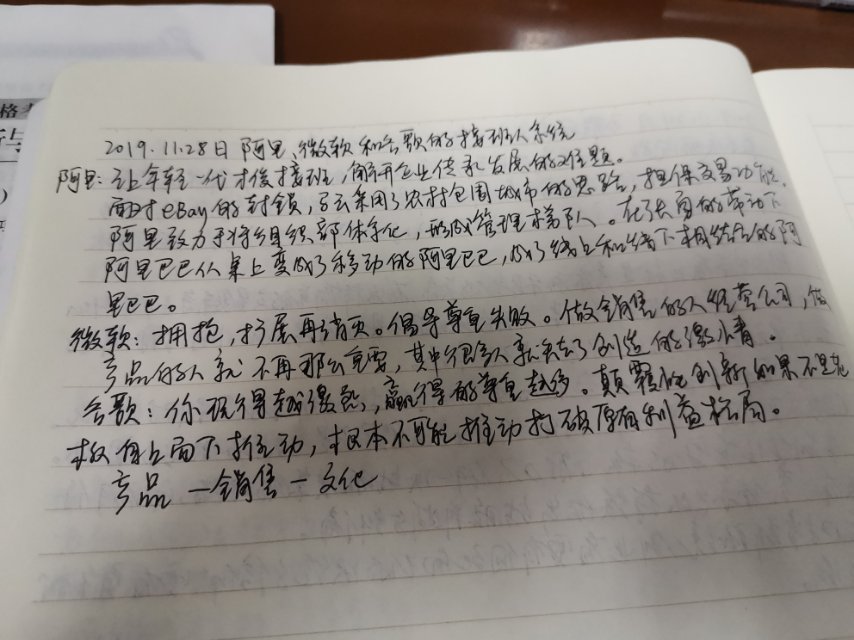 2019.11.28日 阿里、微软和谷歌的接班人系统
阿里：让年轻一代才俊接班，解开企业传承发展的难题。
面对eBay的封锁，马云采用了农村包围城市的思路，担保交易功能。
阿里致力于将组织部体系化，形成管理梯队。在张勇的带动下
阿里巴巴从桌上变成了移动的阿里巴巴，成了线上和线下相结合的阿
里巴巴。
微软：拥抱，扩展再消灭。倡导尊重失败。做销售的人经营公司，做
产品的人就不再那么重要，其中很多人就失去了创造的激情。
谷歌：你玩得越激烈，赢得的尊重越多。颠覆性创新如果不是
权自上而下推动，根本不可能推动打破原有利益格局。
产品 — 销售 — 文化
格